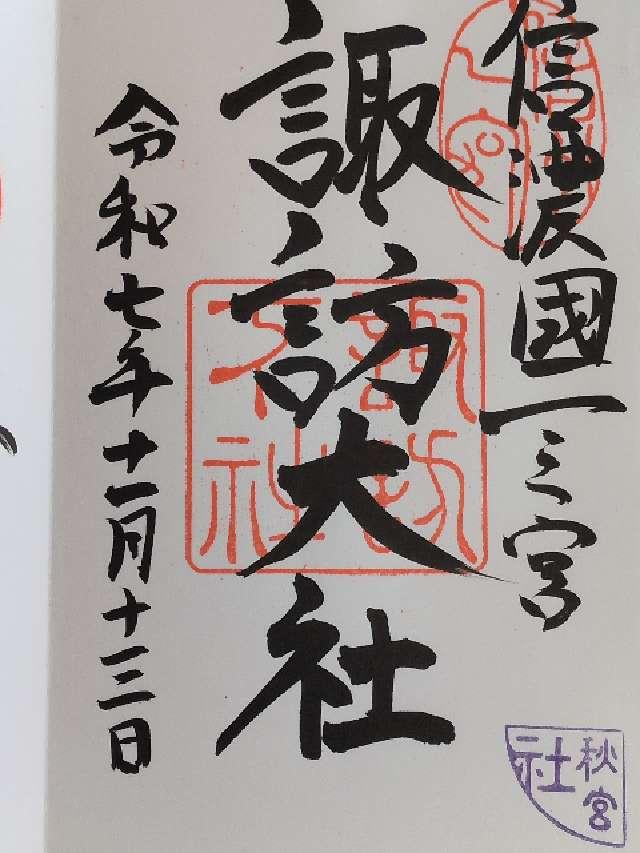 信濃國一之宮
諏訪大社
諏訪
大社
令和七年十一月十三日
秋宮
社